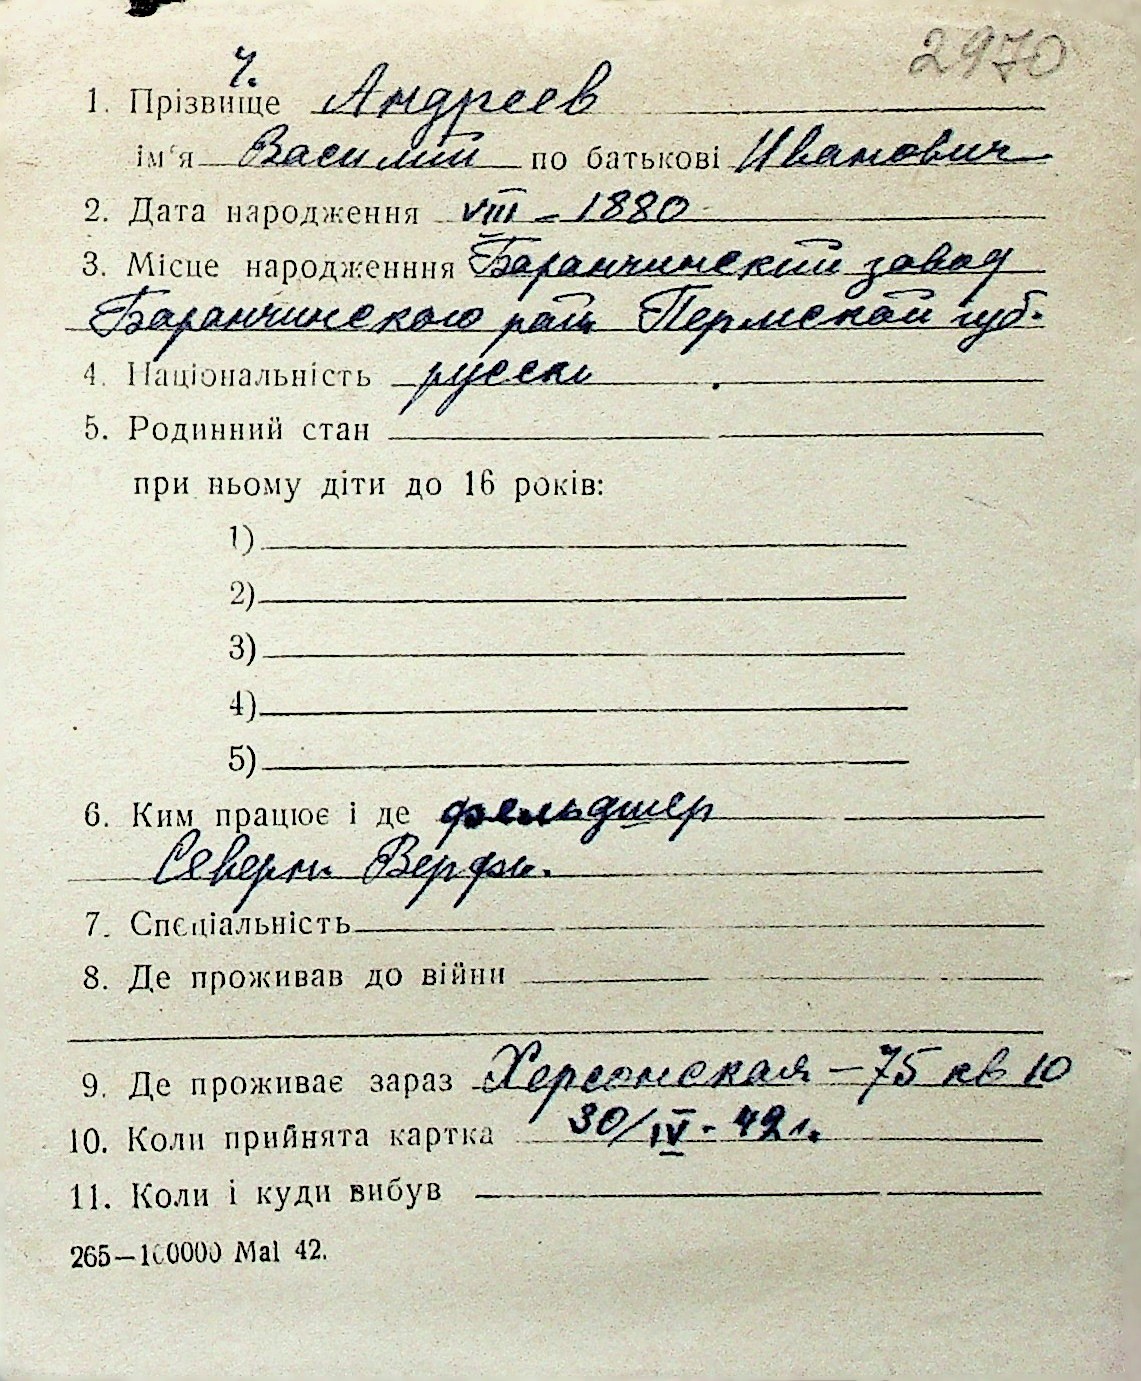 2970
ч.
1. Прізвище Андреев
ім'я Василий по батькові Иванович
2. Дата народження VIII – 1880
3. Місце народженння Баранчинский завод
Баранчинского рай Пермской губ.
4. Національність русски
5. Родинний стан
при ньому діти до 16 років:
1)
2)
3)
4)
5)
6. Ким працює і де фельдшер
Северн. Верфи.
7. Спеціальність
8. Де проживав до війни
9. Де проживає зараз Херсонская – 75 кв 10
10. Коли прийнята картка 30/IV - 42 г.
11. Коли і куди вибув
265—100000 Mai 42.